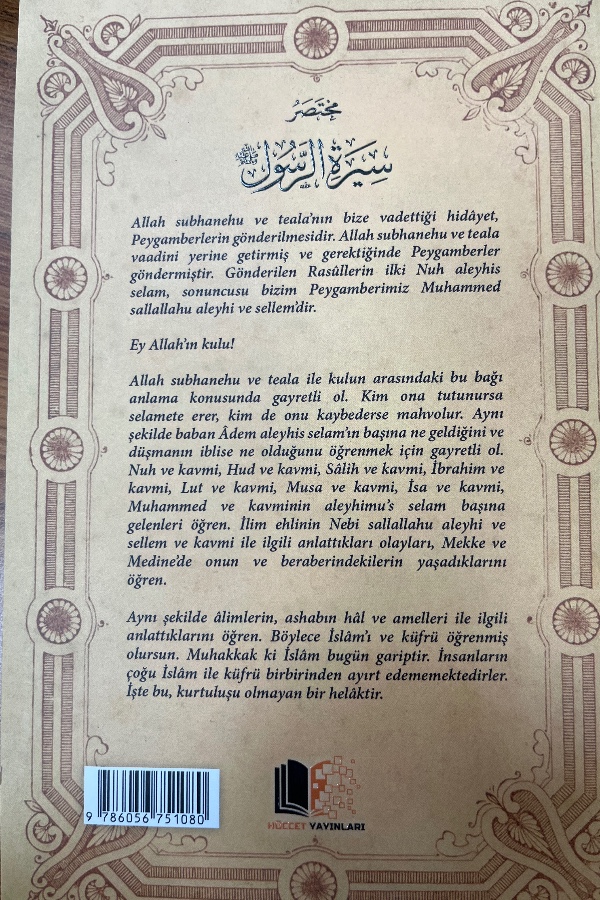 مختصر
سيرة الرسول ﷺ
Allah subhanehu ve teala'nın bize vadettiği hidâyet,
Peygamberlerin gönderilmesidir. Allah subhanehu ve teala
vaadini yerine getirmiş ve gerektiğinde Peygamberler
göndermiştir. Gönderilen Rasûllerin ilki Nuh aleyhis
selam, sonuncusu bizim Peygamberimiz Muhammed
sallallahu aleyhi ve sellem'dir.
Ey Allah'ın kulu!
Allah subhanehu ve teala ile kulun arasındaki bu bağı
anlama konusunda gayretli ol. Kim ona tutunursa
selamete erer, kim de onu kaybederse mahvolur. Aynı
şekilde baban Âdem aleyhis selam'ın başına ne geldiğini ve
düşmanın iblise ne olduğunu öğrenmek için gayretli ol.
Nuh ve kavmi, Hud ve kavmi, Sâlih ve kavmi, İbrahim ve
kavmi, Lut ve kavmi, Musa ve kavmi, İsa ve kavmi,
Muhammed ve kavminin aleyhimu's selam başına
gelenleri öğren. İlim ehlinin Nebi sallallahu aleyhi ve
sellem ve kavmi ile ilgili anlattıkları olayları, Mekke ve
Medine'de onun ve beraberindekilerin yaşadıklarını
öğren.
Aynı şekilde âlimlerin, ashabın hâl ve amelleri ile ilgili
anlattıklarını öğren. Böylece İslâm'ı ve küfrü öğrenmiş
olursun. Muhakkak ki İslâm bugün gariptir. İnsanların
çoğu İslâm ile küfrü birbirinden ayırt edememektedirler.
İşte bu, kurtuluşu olmayan bir helâktir.
9 786056 751080
HÜCCET YAYINLARI